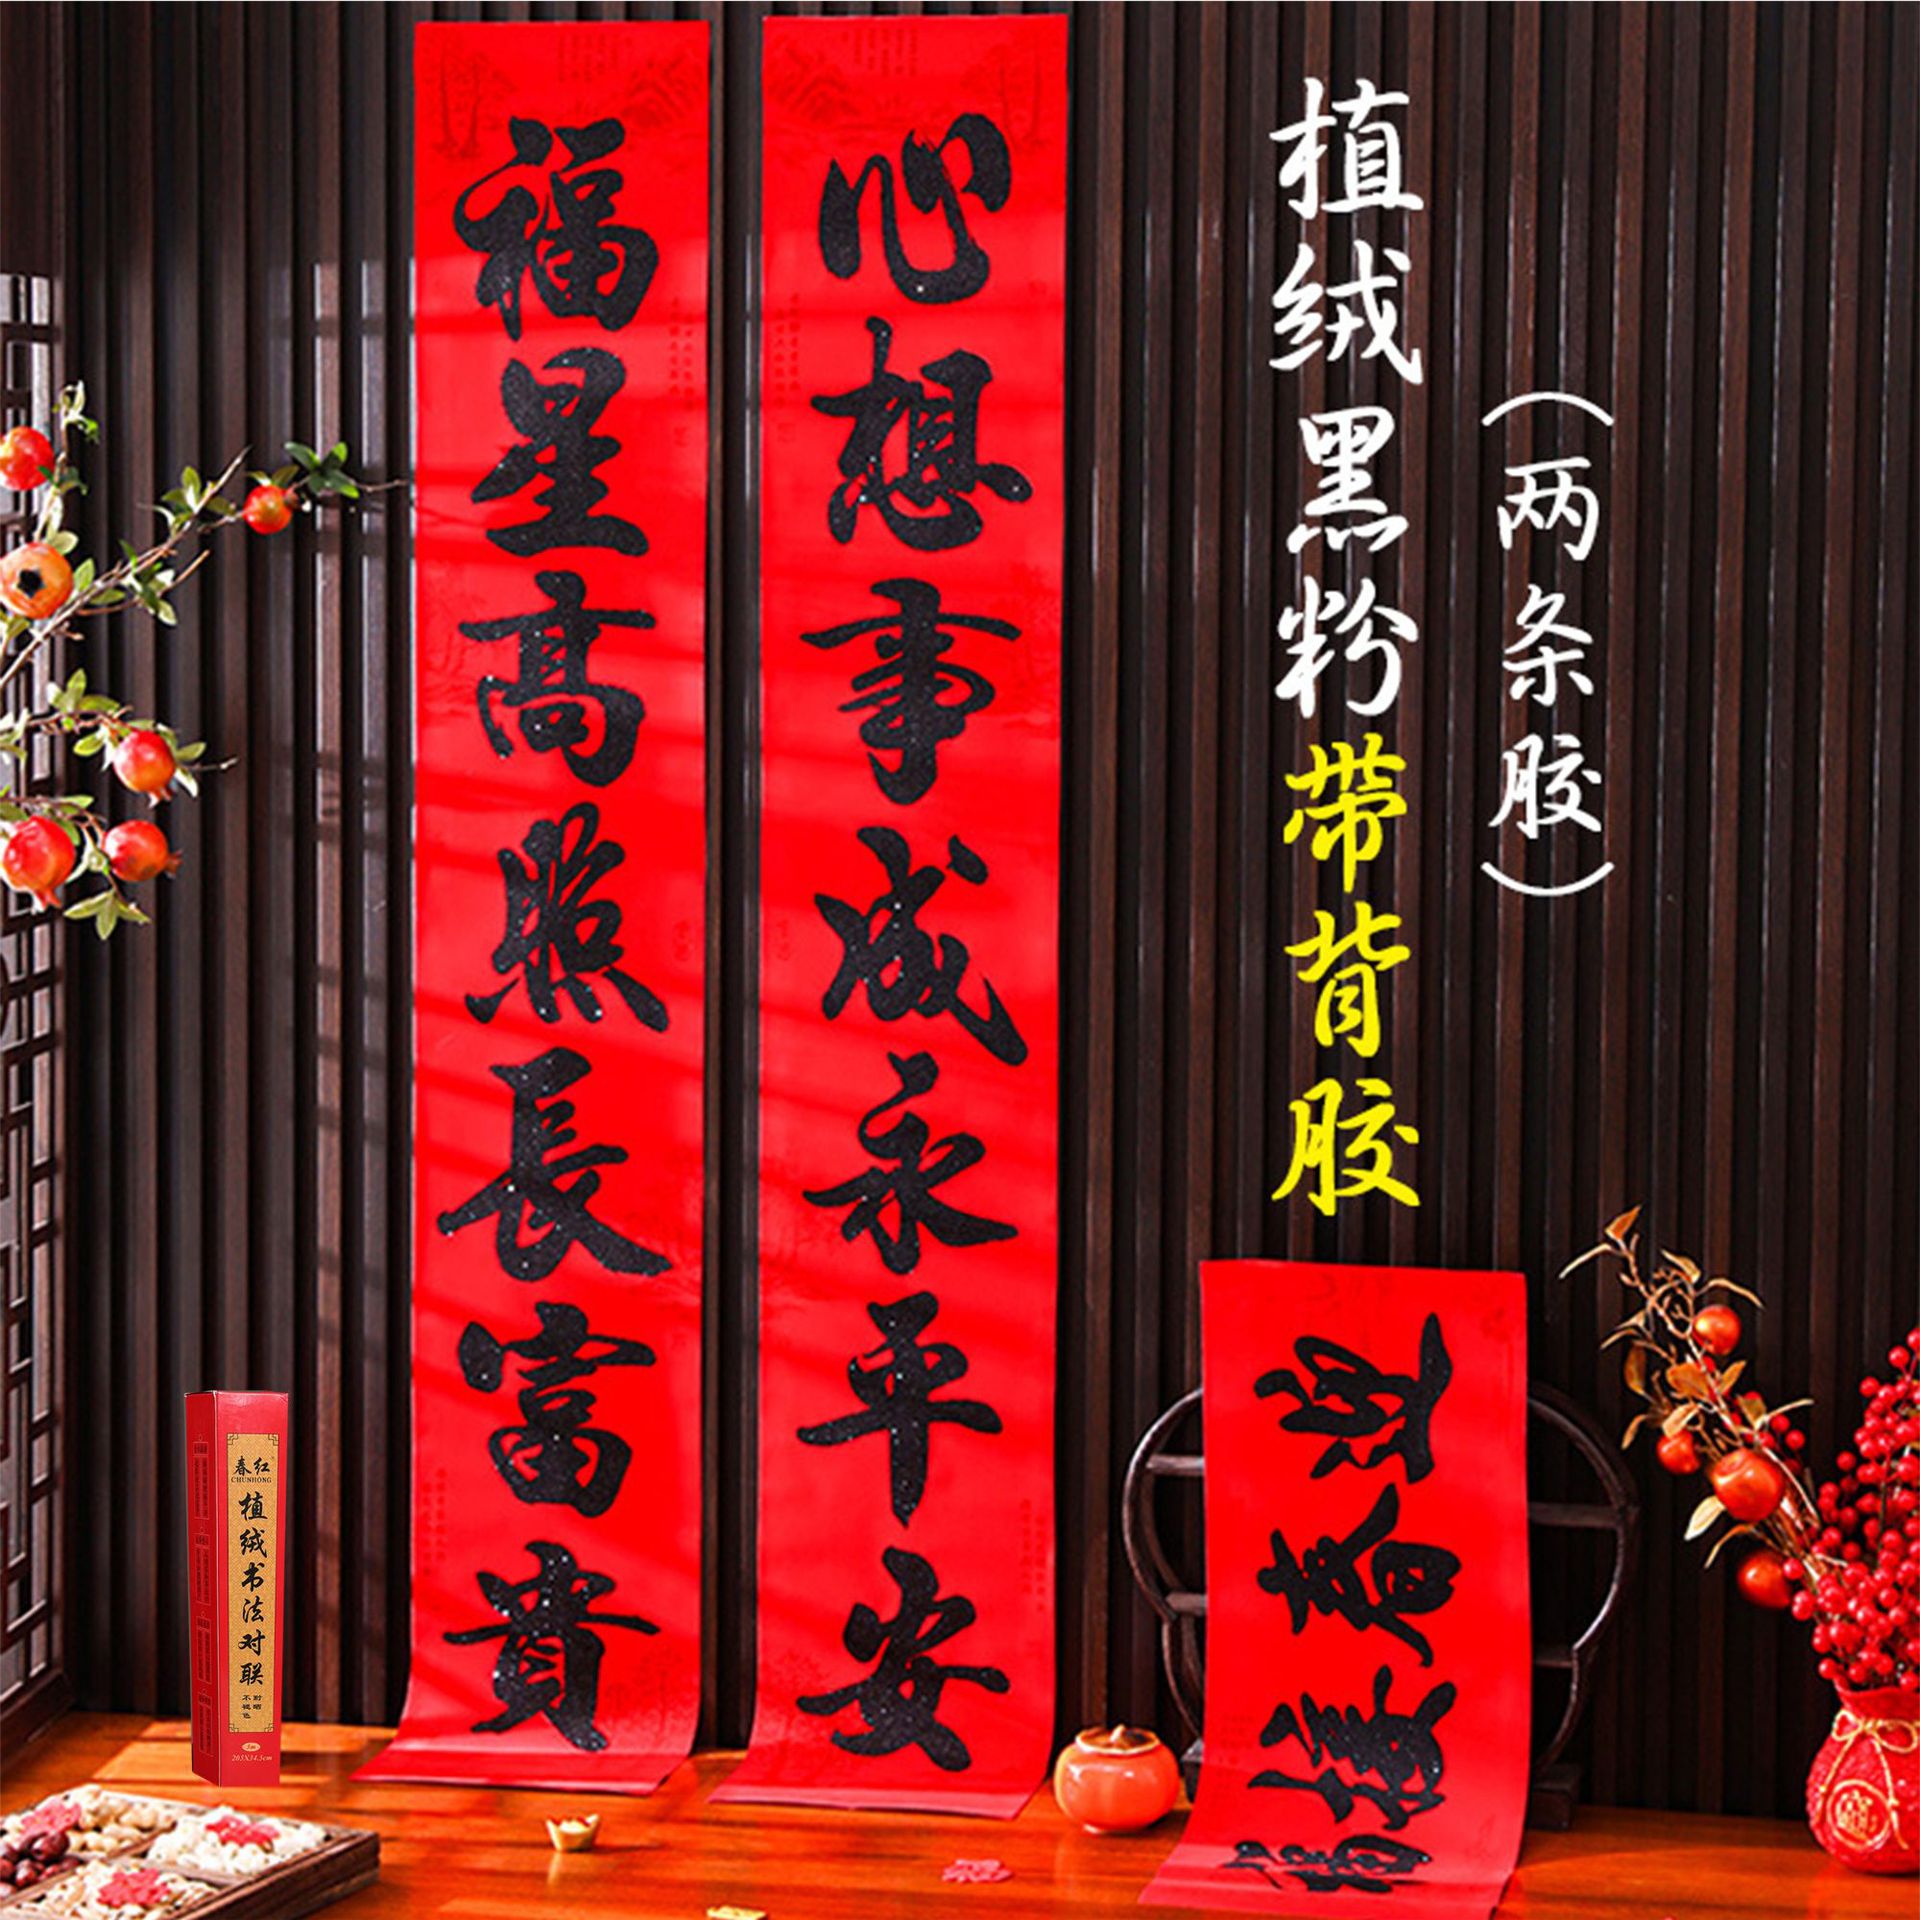 植绒黑粉带背胶
（两条胶）
心想事成永平安
福星高照長富貴
迎春接福
春红
CHUNHONG
植绒书法对联
耐晒
不褪色
205X34.5cm